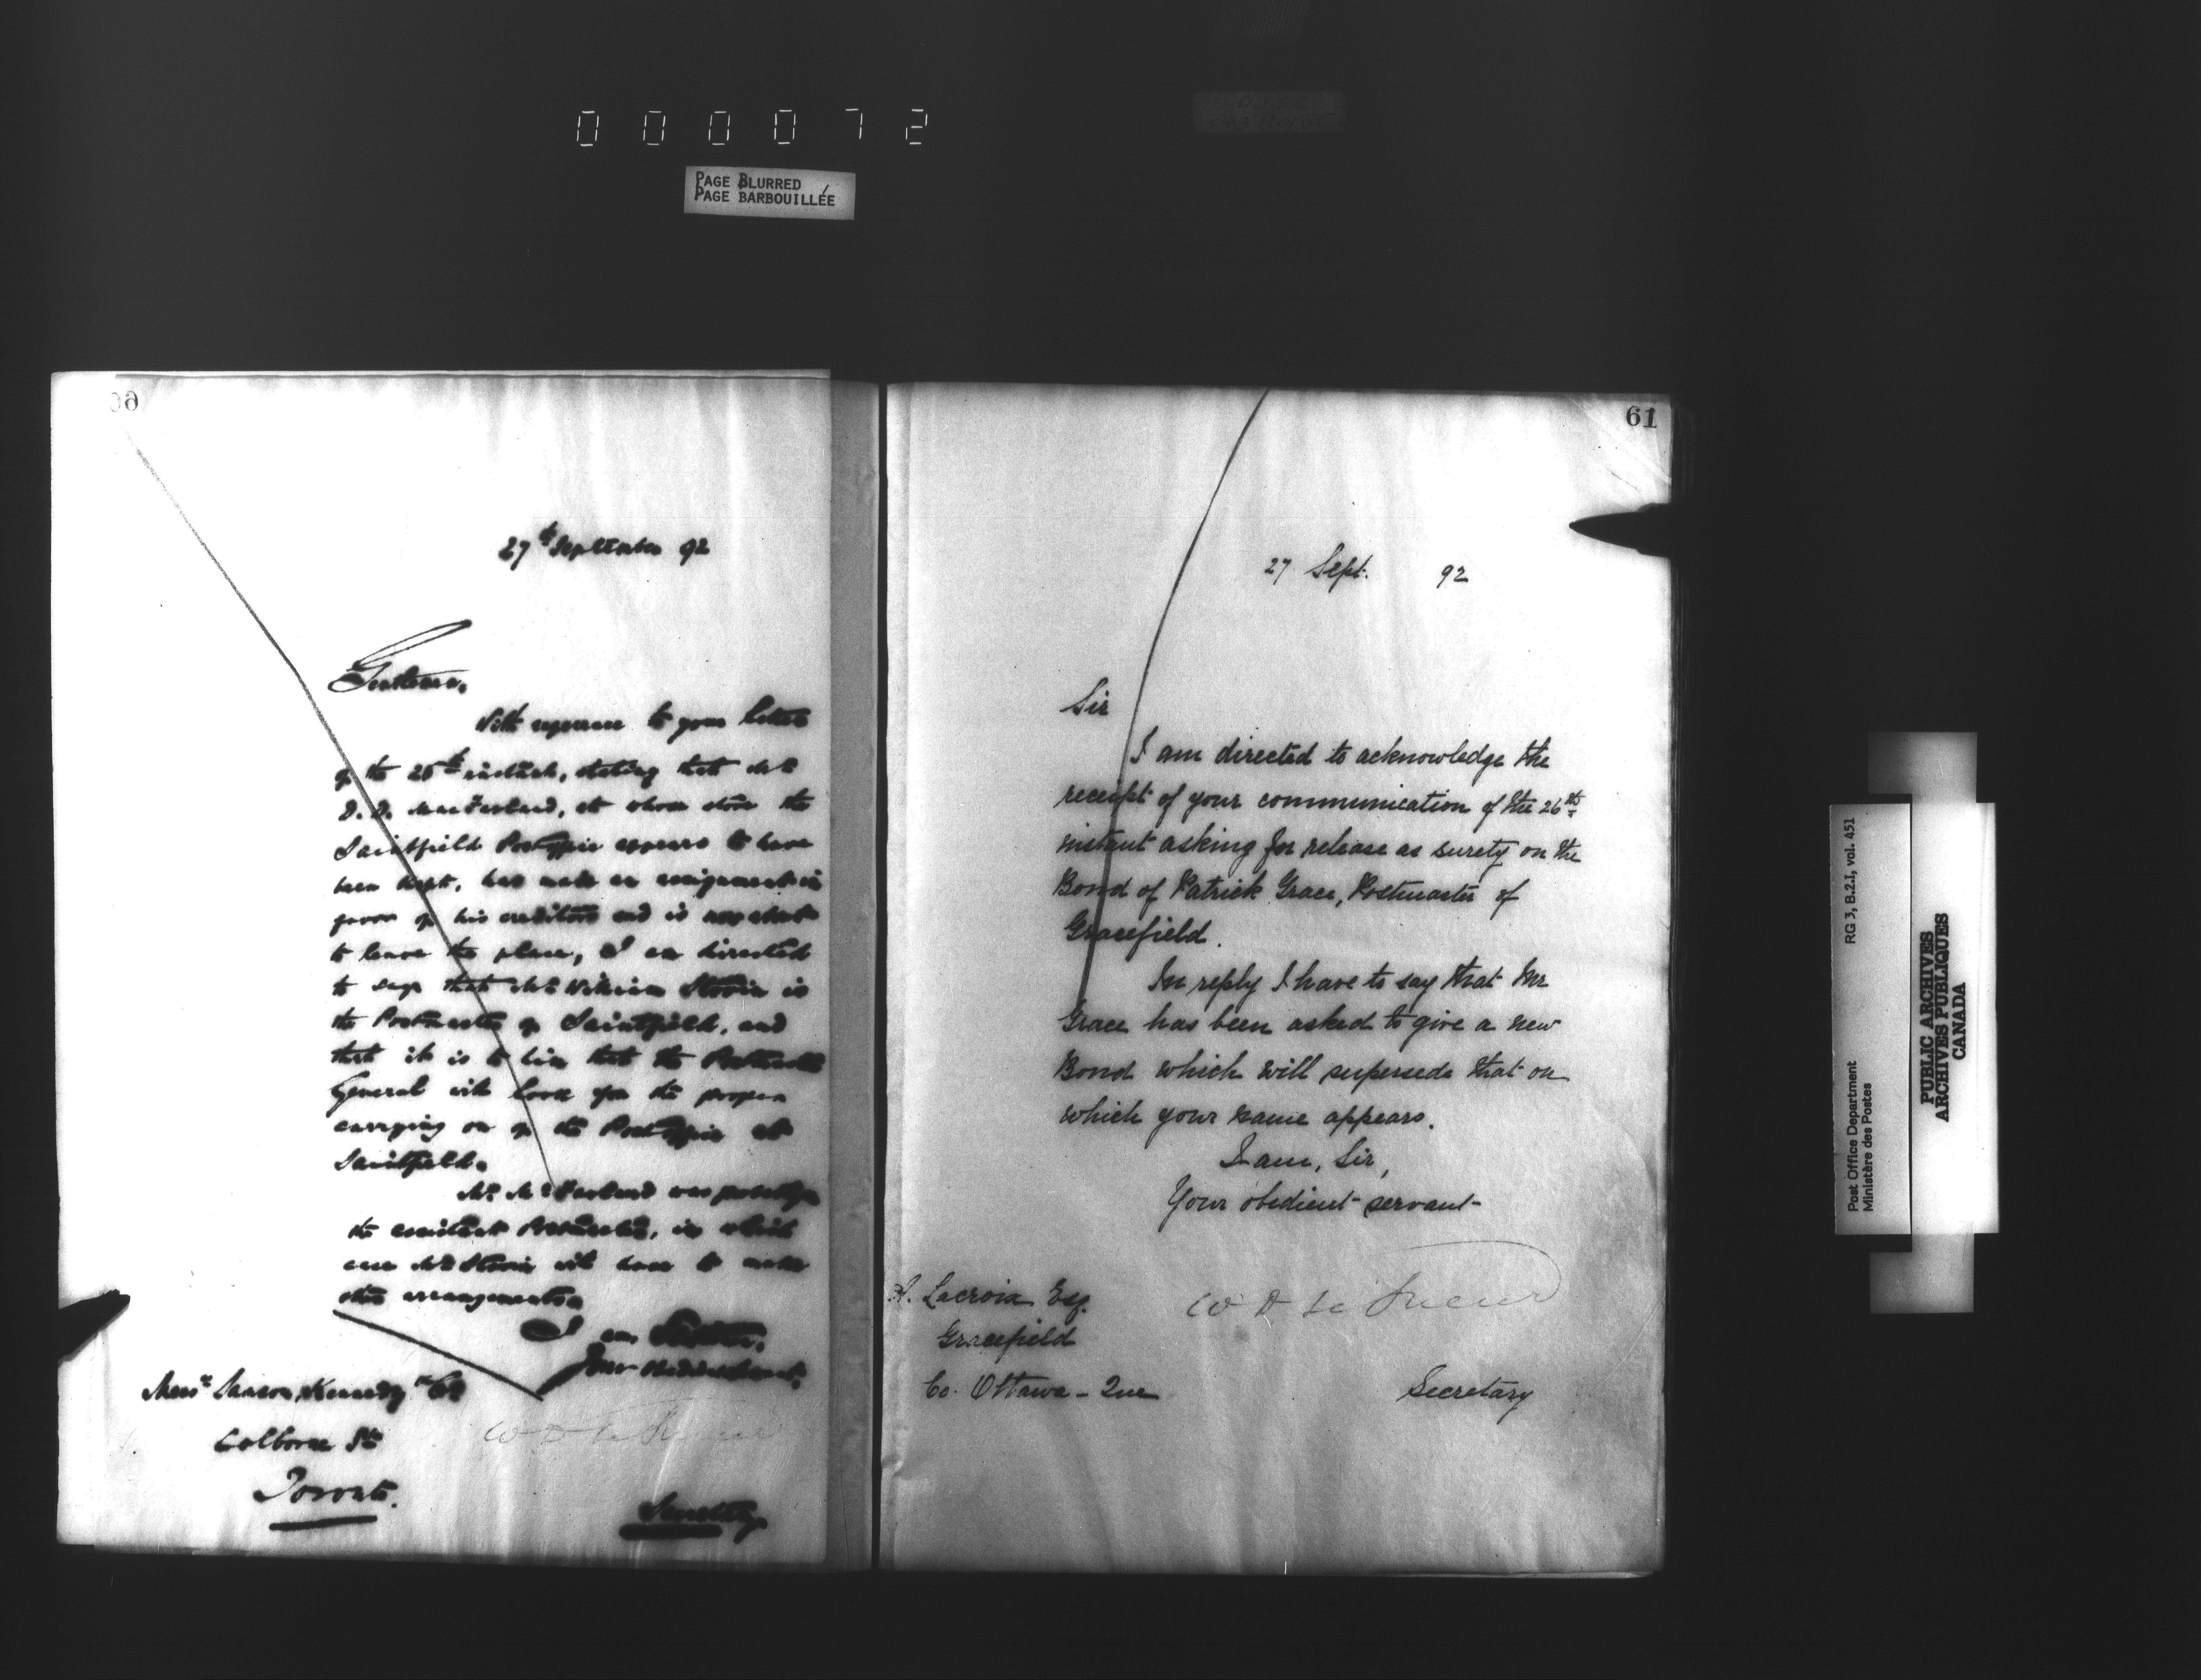 000072
PAGE BLURRED
PAGE BARBOUILLÉE
60
27th September 92
Gentlemen,
With reference to your letter
of the 26th instant, stating that Mr
D. D. MacFarland, at whose store the
Saintfield Post Office appears to have
been kept, has made an assignment in
favor of his creditors and is now about
to leave the place, I am directed
to say that Mr William Stovin is
the Postmaster of Saintfield, and
that it is to him that the Postmaster
General will look for the proper
carrying on of the Post Office at
Saintfield.
Mr McFarland was possibly
the assistant Postmaster, in which
case Mr Stovin will have to make
other arrangements.
I am, Gentlemen,
Your obedient Servant,
Messrs Samson, Kennedy & Co
Colborne St
Toronto.
W D Le Sueur
Secretary
61
27 Sept. 92
Sir
I am directed to acknowledge the
receipt of your communication of the 26th
instant asking for release as surety on the
Bond of Patrick Grace, Postmaster of
Gracefield.
In reply I have to say that Mr
Grace has been asked to give a new
Bond which will supersede that on
which your name appears.
I am, Sir,
Your obedient servant
W D Le Sueur
A. Lacroix Esq.
Gracefield
Co. Ottawa - Que
Secretary
Post Office Department RG 3, B.2.I, vol. 451
Ministère des Postes
PUBLIC ARCHIVES
ARCHIVES PUBLIQUES
CANADA